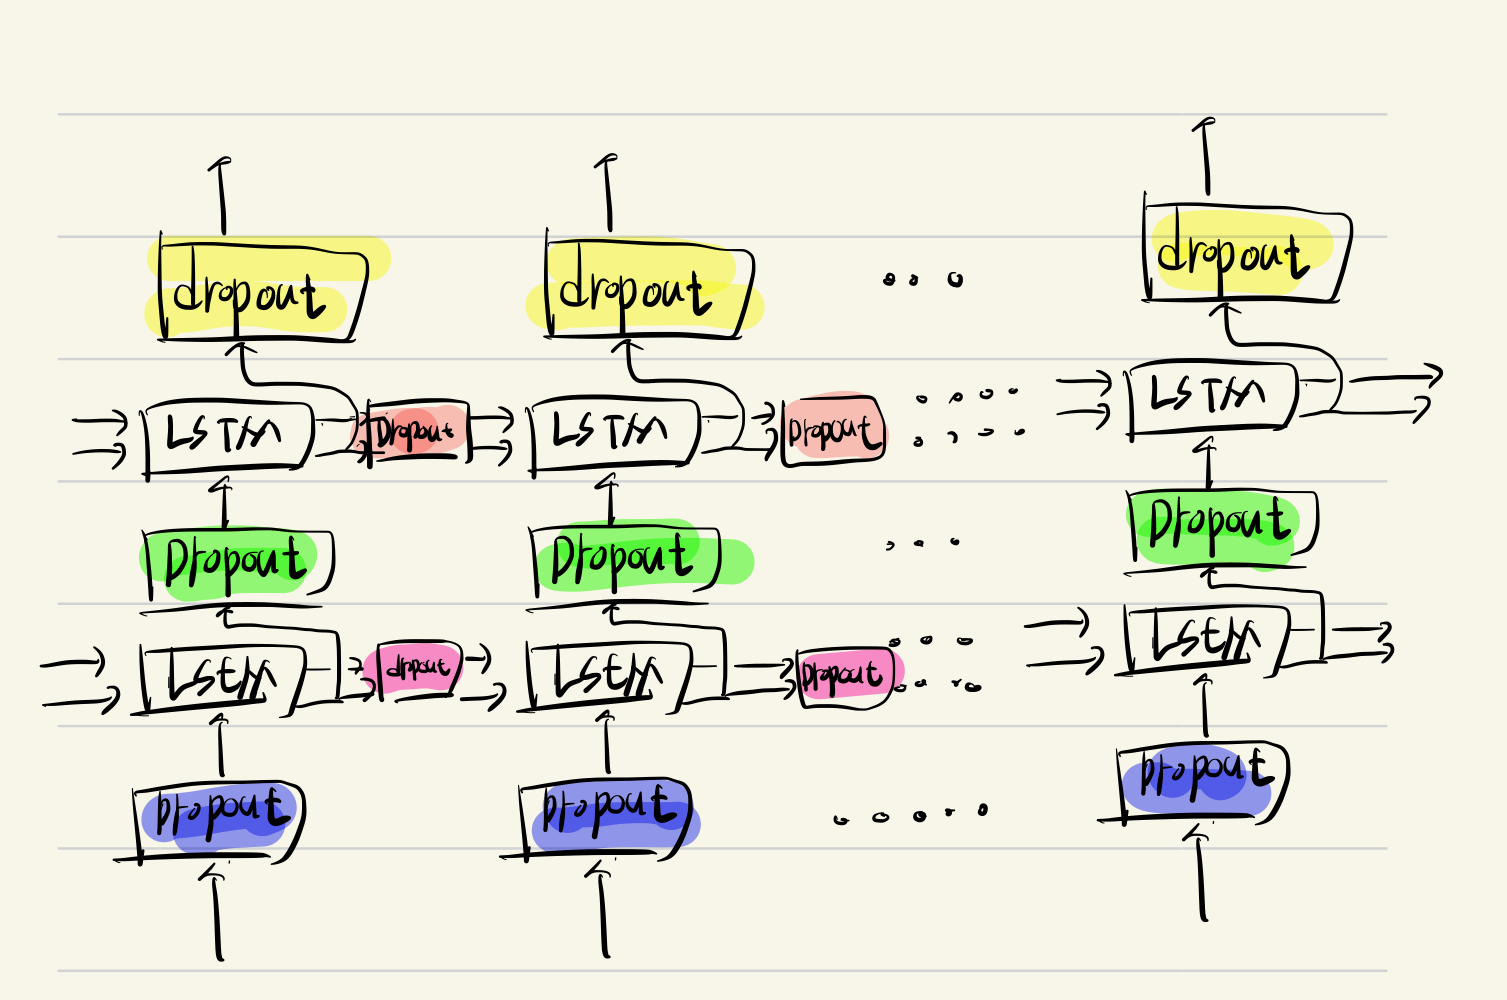 dropout dropout dropout
LSTM Dropout LSTM Dropout LSTM
Dropout Dropout Dropout
LStM dropout LStM Dropout LStM
Dropout Dropout Dropout